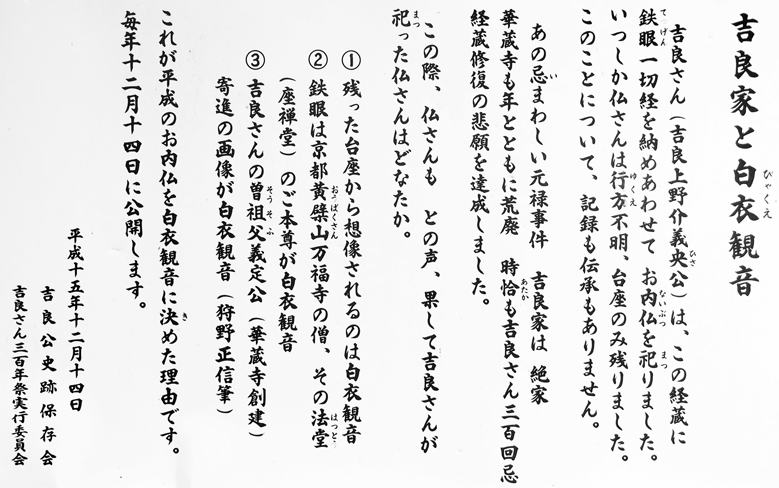 吉良家と白衣観音
吉良さん（吉良上野介義央公）は、この経蔵に
鉄眼一切経を納めあわせて お内仏を祀りました。
いつしか仏さんは行方不明、台座のみ残りました。
このことについて、記録も伝承もありません。
あの忌まわしい元禄事件 吉良家は 絶家
華蔵寺も年とともに荒廃 時恰も吉良さん三百回忌
経蔵修復の悲願を達成しました。
この際、仏さんも との声、果して吉良さんが
祀った仏さんはどなたか。
①残った台座から想像されるのは白衣観音
②鉄眼は京都黄檗山万福寺の僧、その法堂
（座禅堂）のご本尊が白衣観音
③吉良さんの曽祖父義定公（華蔵寺創建）
寄進の画像が白衣観音（狩野正信筆）
これが平成のお内仏を白衣観音に決めた理由です。
毎年十二月十四日に公開します。
平成十五年十二月十四日
吉良公史跡保存会
吉良さん三百年祭実行委員会